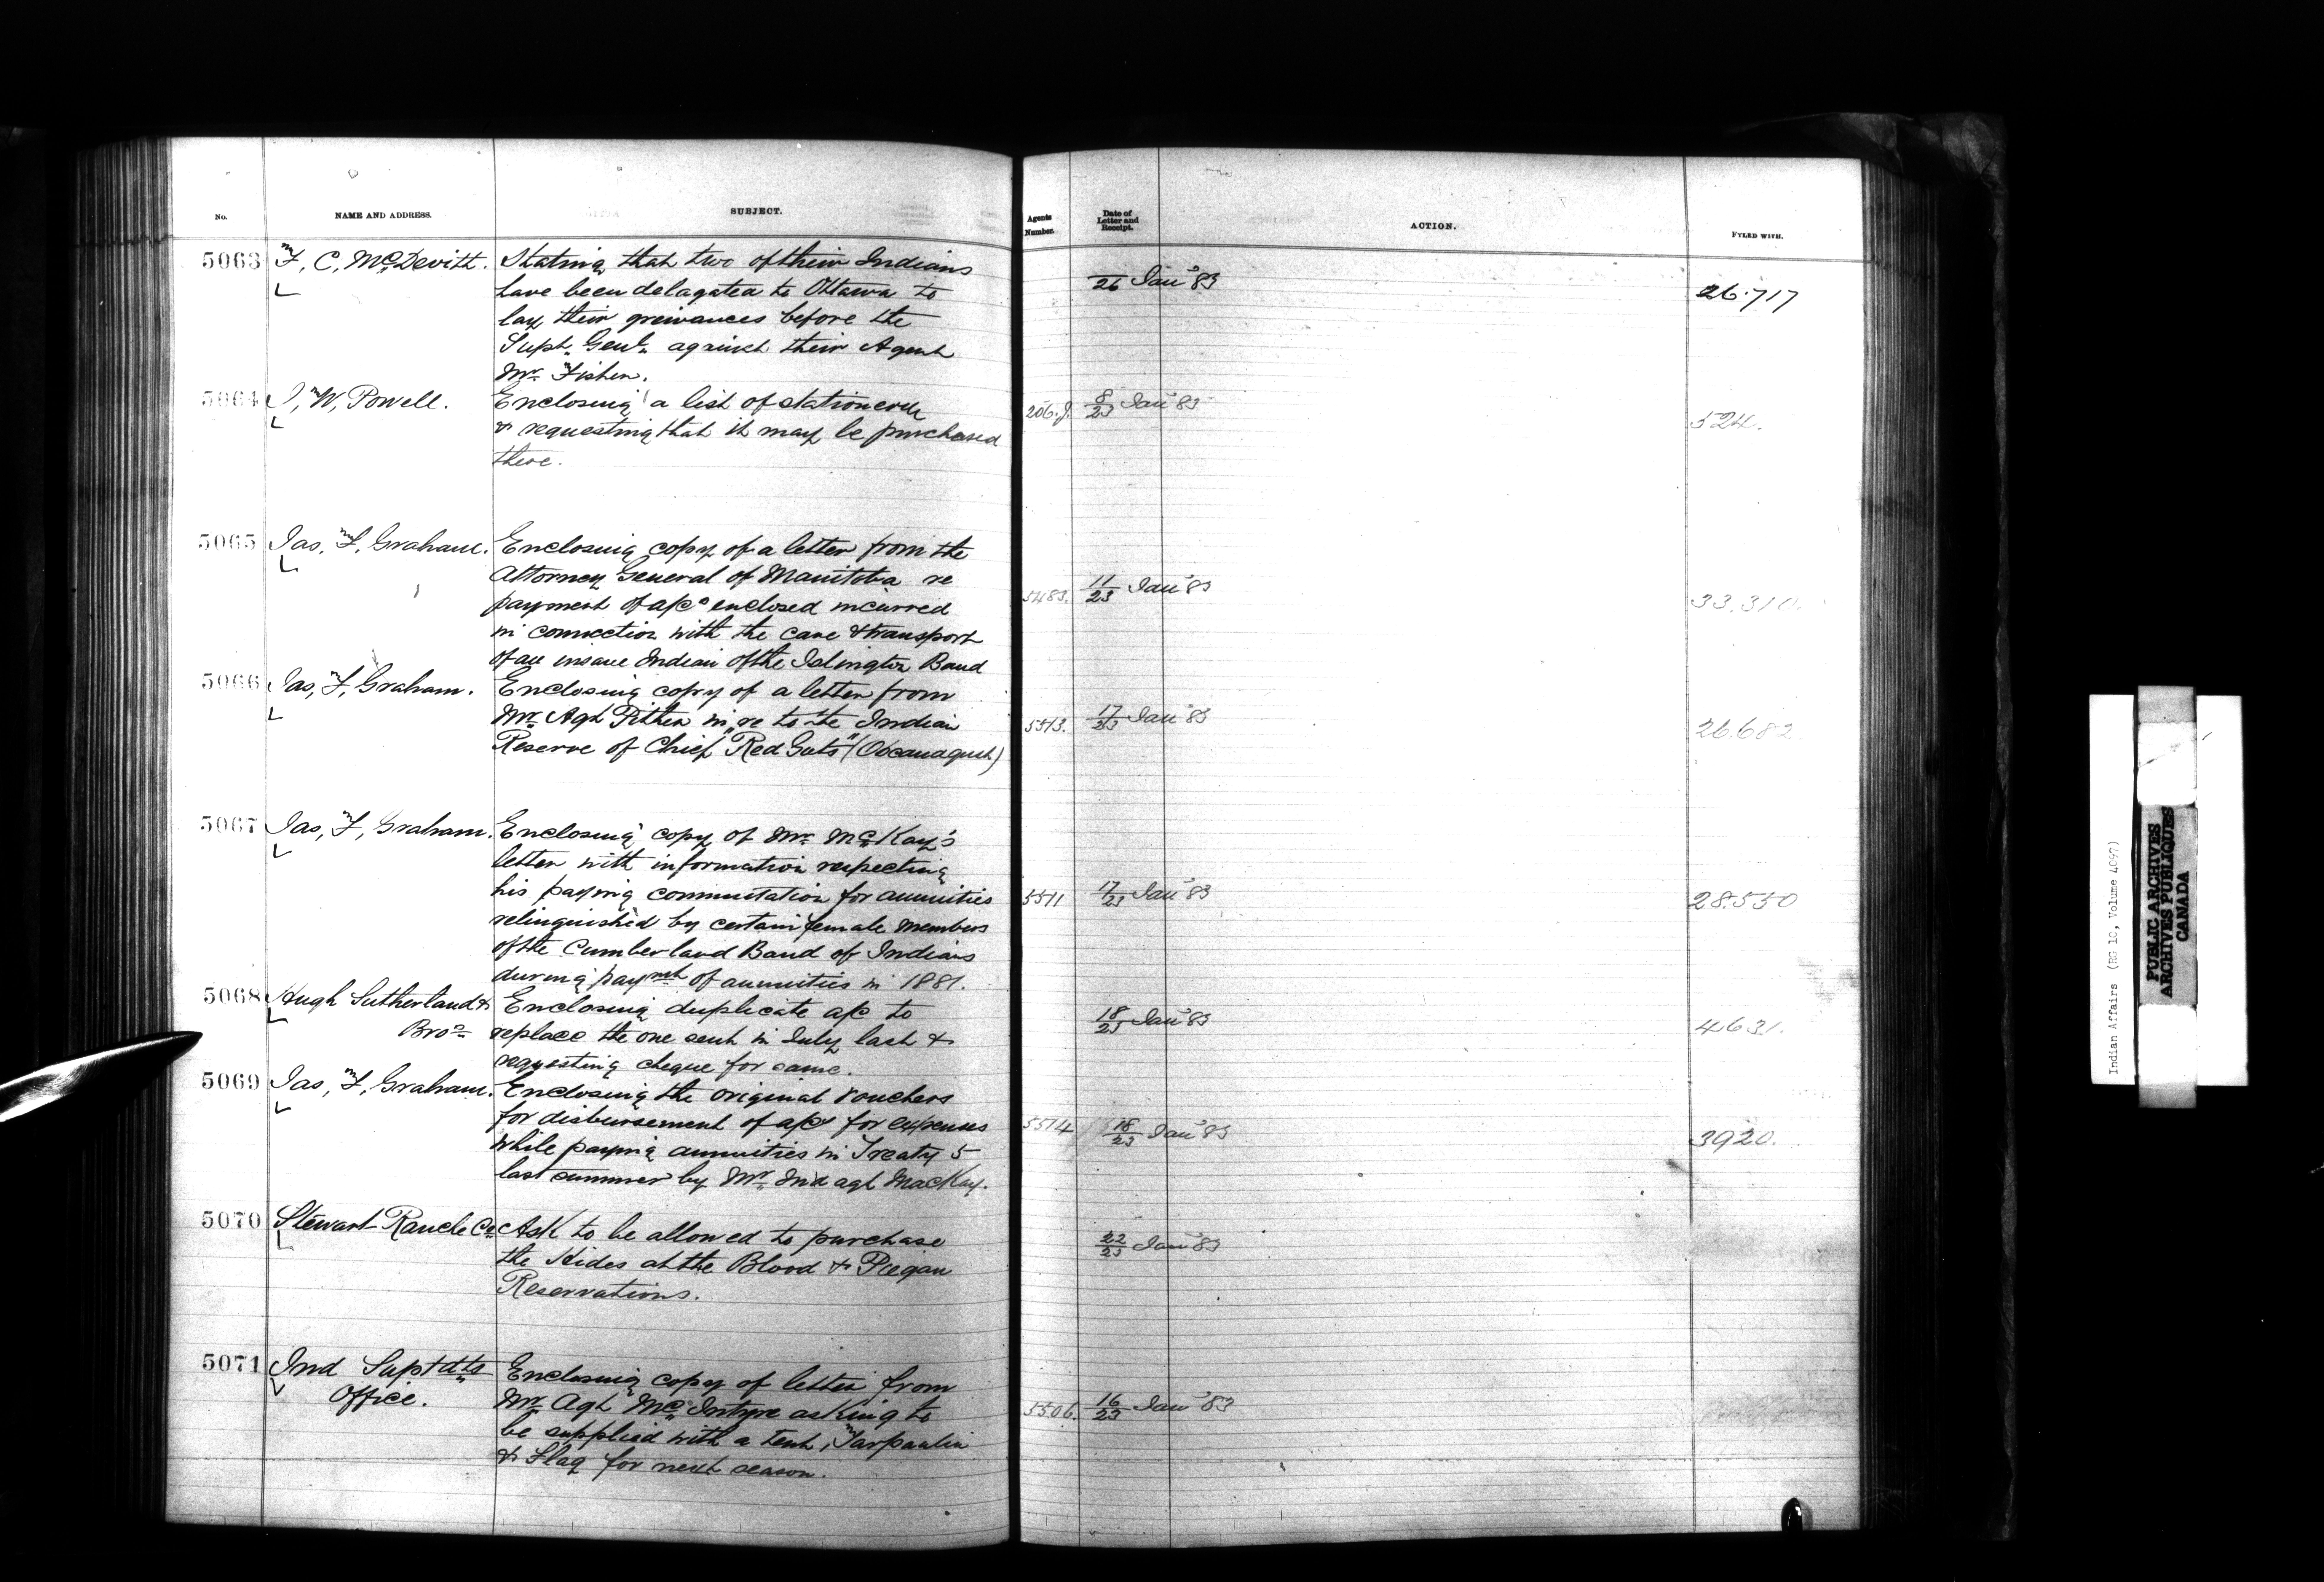 No.
NAME AND ADDRESS.
SUBJECT.
Agents Number.
Date of Letter and Receipt.
ACTION.
FYLED WITH.
5063 F, C, McDevitt. Stating that two of their Indians
have been delagated to Ottawa to
lay their greivances before the
Supt. Genl. against their Agent
Mr. Fisher.
26 Jan '83
26.717
5064 J, W, Powell. Enclosing a list of stationery
& requesting that it may be purchased
there.
206.J. 8/23 Jan '83
524.
5065 Jas, F, Graham. Enclosing copy of a letter from the
Attorney General of Manitoba re
payment of a/cs enclosed incurred
in connection with the care & transport
of an insane Indian of the Islington Band
5483. 11/23 Jan '83
33.310.
5066 Jas, F, Graham. Enclosing copy of a letter from
Mr. Agt Pither in re to the Indian
Reserve of Chief "Red Guts"
5513. 17/23 Jan '83
26.682
5067 Jas, F, Graham. Enclosing copy of Mr. McKay's
letter with information respecting
his paying commutation for annuities
relinquished by certain female members
of the Cumberland Band of Indians
during paymt of annuities in 1881.
5511 17/23 Jan '83
28.550
5068 Hugh Sutherland & Enclosing duplicate a/c to
Bros replace the one sent in July last &
requesting cheque for same.
18/23 Jan '83
4631.
5069 Jas, F, Graham. Enclosing the original vouchers
for disbursement of a/cs for expenses
while paying annuities in Treaty 5
last summer by Mr. Ind agt MacKay.
5514 18/23 Jan '83
3920.
5070 Stewart Ranche Co Ask to be allowed to purchase
the Hides at the Blood & Piegan
Reservations.
22/23 Jan '83
5071 Ind Suptdts Enclosing copy of letter from
Office. Mr. Agt McIntyre asking to
be supplied with a tent, Tarpaulin
& Flag for next season.
5506. 16/23 Jan '83
Indian Affairs (RG 10, Volume 4097)
PUBLIC ARCHIVES
ARCHIVES PUBLIQUES
CANADA